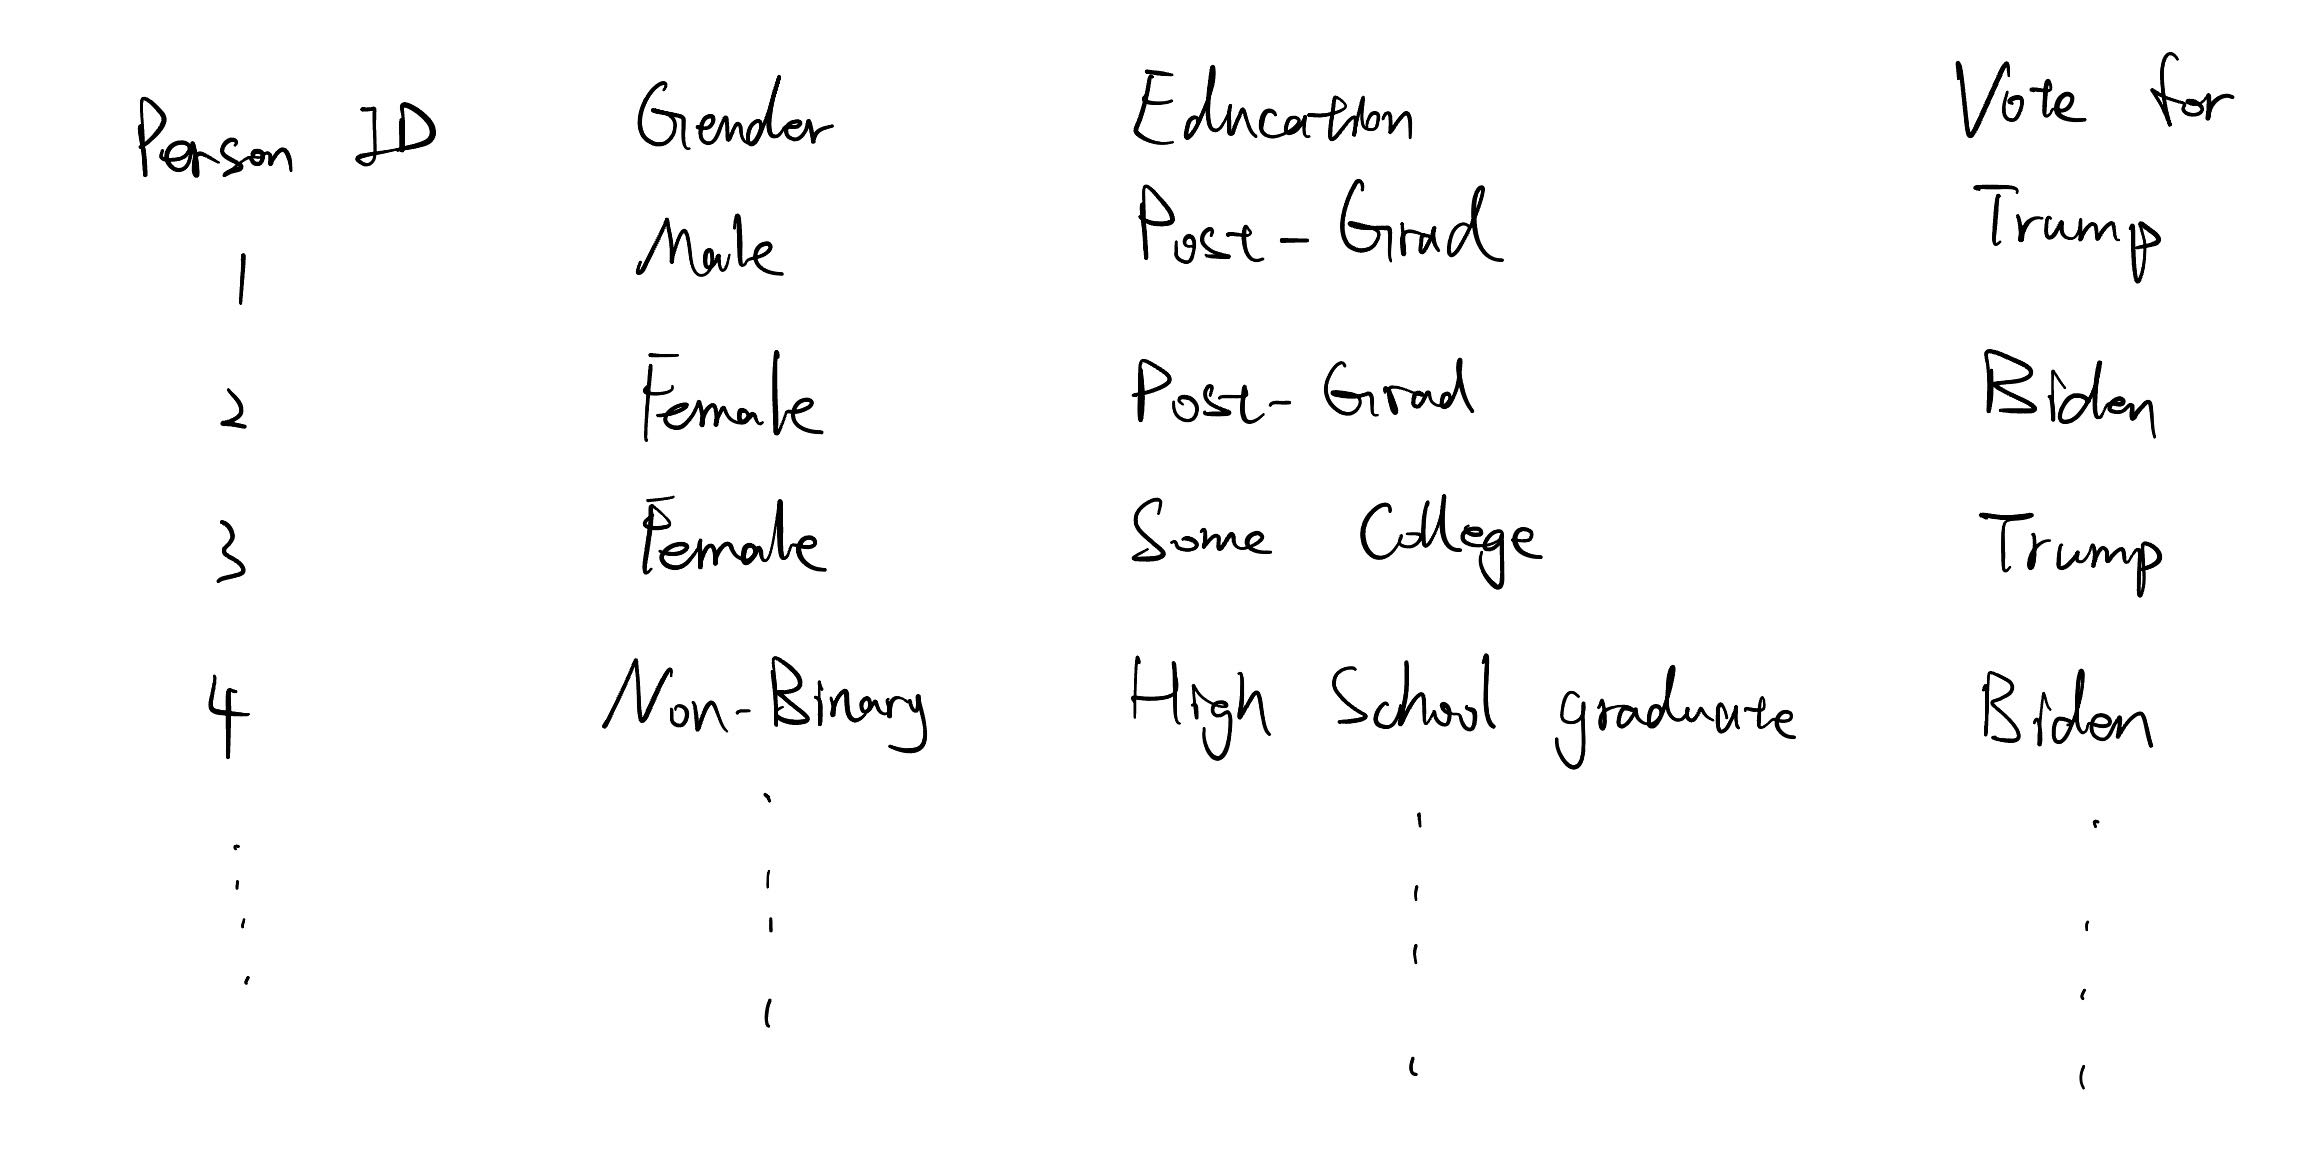 Person ID Gender Education Vote for
1 Male Post-Grad Trump
2 Female Post-Grad Biden
3 Female Some College Trump
4 Non-Binary High School graduate Biden